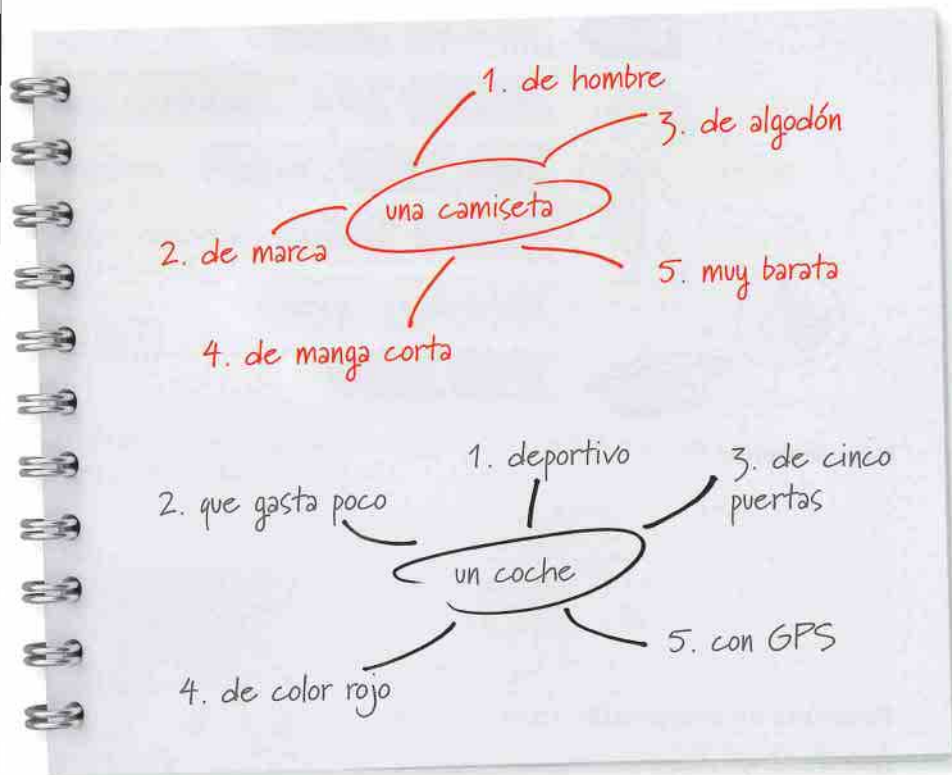 1. de hombre
3. de algodón
una camiseta
2. de marca
5. muy barata
4. de manga corta
1. deportivo
3. de cinco
puertas
2. que gasta poco
un coche
5. con GPS
4. de color rojo